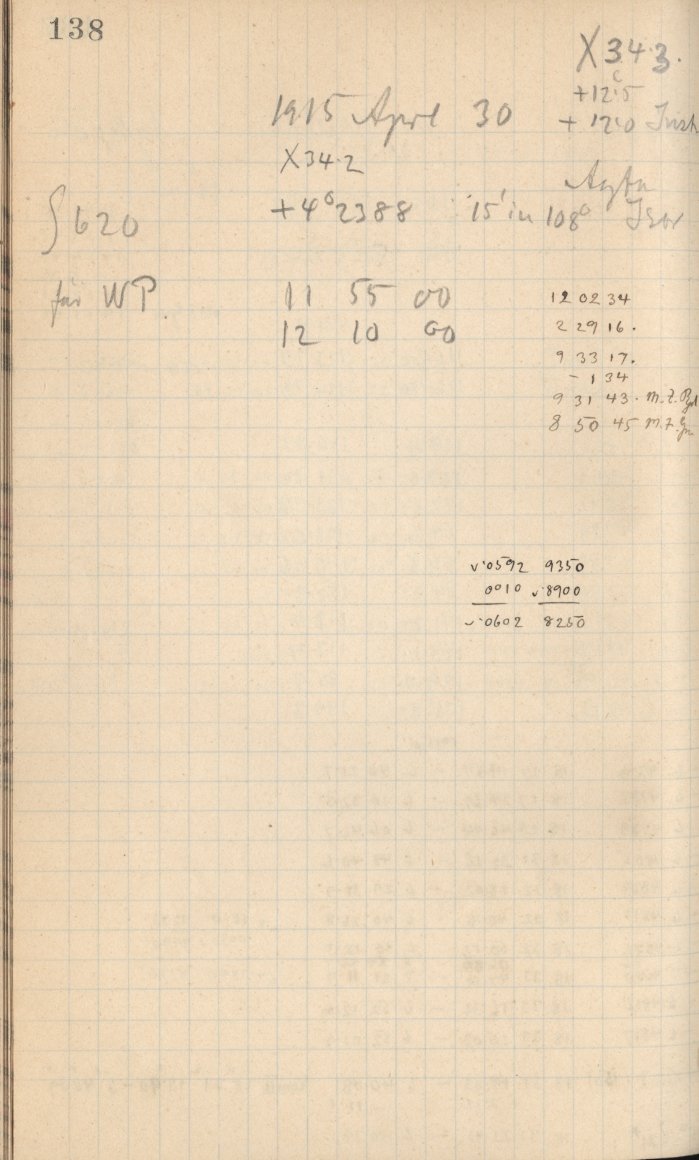 138
X 34.3.
+12.5 C
1915 April 30 + 12.0 Irish
X 34.2
Agfa
∫ 620 +4°2388 15' in 108° Isor
für WP. 11 55 00 12 02 34
12 10 00 2 29 16.
9 33 17.
- 1 34
9 31 43. M.Z.
8 50 45 M.Z.
0592 9350
0010 8900
0602 8250